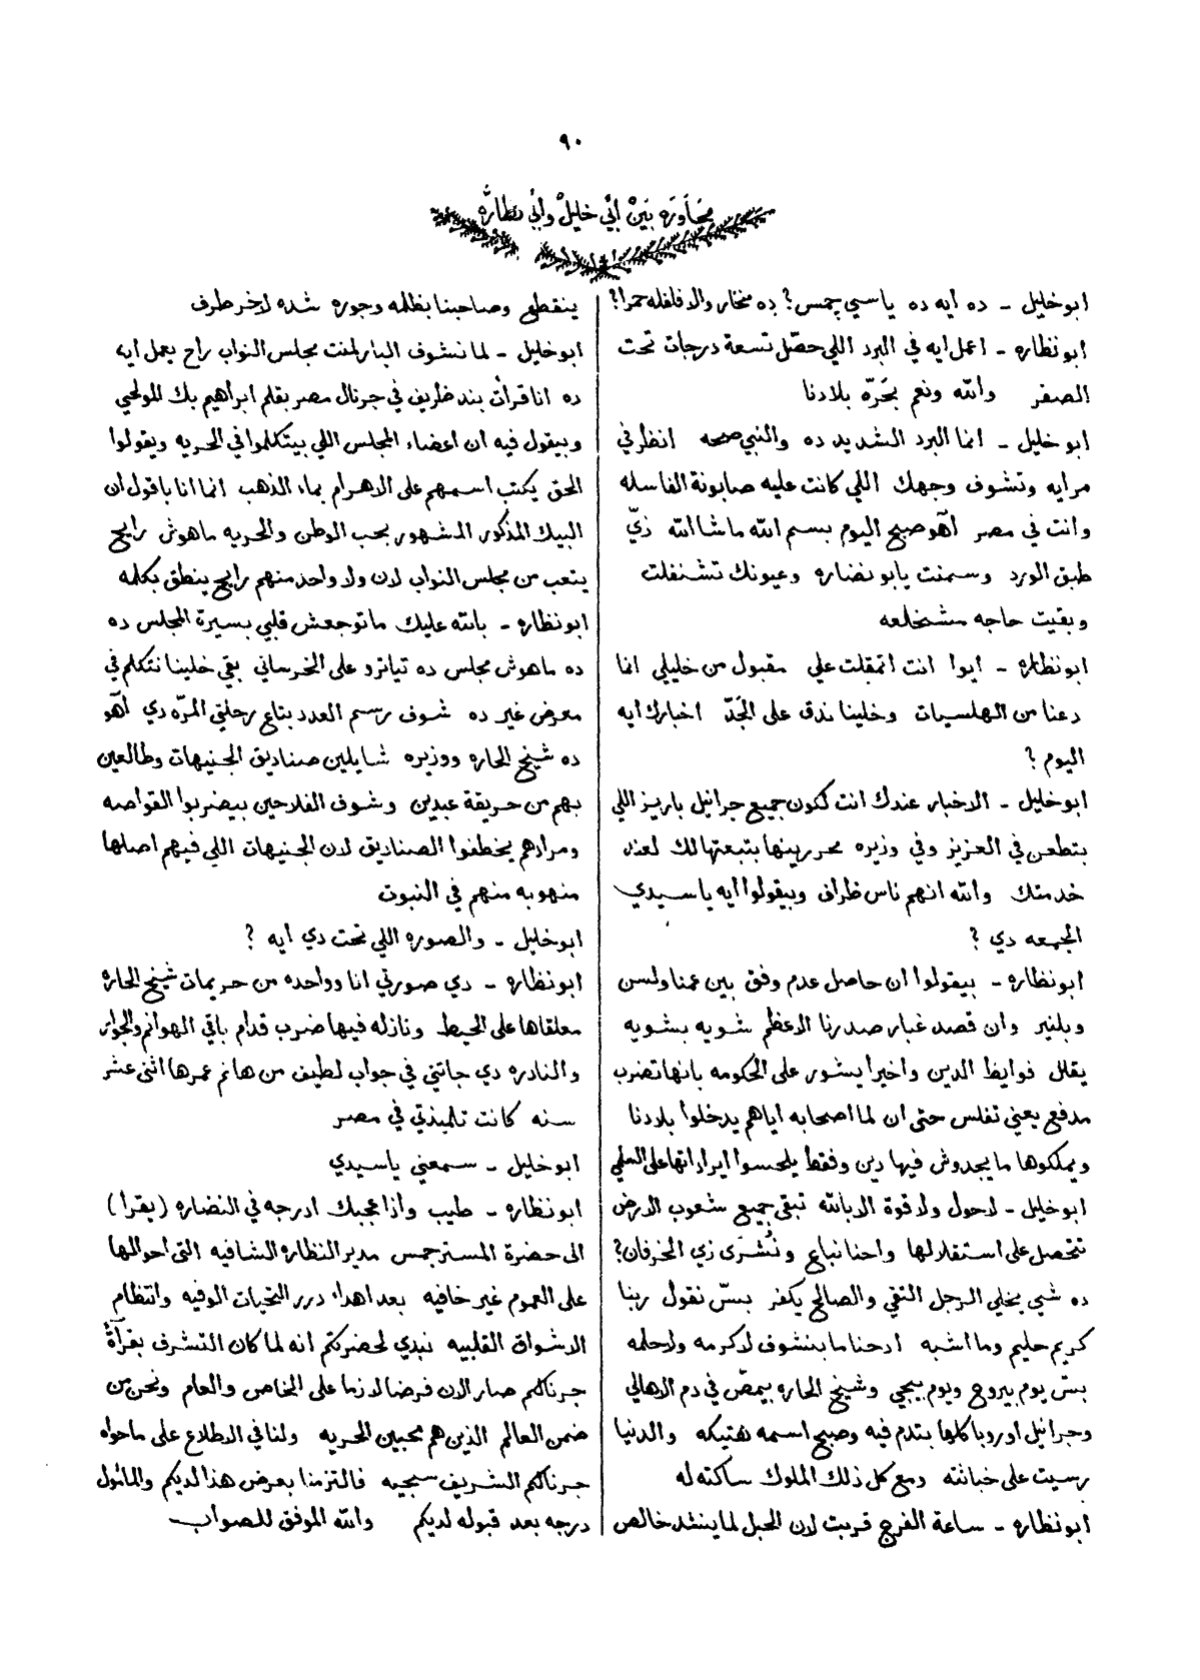 ٩٠
محاورة بين أبي خليل وأبي نظاره
ابو خليل - ده ايه ده ياسي چمس؟ ده مخار والا فلفله حمرا؟
ابو نظاره - اعمل ايه في البرد اللي حصّل تسعة درجات تحت
الصفر والله ونعم بحَرّة بلادنا
ابو خليل - انما البرد الشديد ده والنبي صحه انظر في
مرايه وتشوف وجهك اللي كانت عليه صابونة الفاسله
وانت في مصر اهو صبح اليوم بسم الله ماشاالله زيّ
طبق الورد وسمنت يابو نضاره وعيونك تشنفلت
وبقيت حاجه مشخلعه
ابو نظاره - ايوا انت اتمقلت علي مقبول من خليلي انما
دعنا من الهلسيات وخلينا ندق على الجَدّ اخبارك ايه
اليوم؟
ابو خليل - الاخبار عندك انت لكون جميع جرانيل باريز اللي
بتطعن في العزيز وفي وزيره محررينها بتبعتها لك لعند
خدمتك والله انهم ناس ظراف وبيقولوا ايه ياسيدي
الجمعه دي؟
ابو نظاره - بيقولوا ان حاصل عدم وفق بين عمنا ولسن
وبلنير وان قصد غبار صدرنا الاعظم شويه بشويه
يقلل فوايظ الدين واخيرا يشور على الحكومه بانها تضرب
مدفع يعني تفلس حتى ان لما اصحابه اياهم يدخلوا بلادنا
ويملكوها ما يجدوش فيها دين وفقط يلحسوا ايراداتها على الملي
ابو خليل - لاحول ولا قوة الا بالله تبقى جميع شعوب الارض
تتحصل على استقلالها واحنا نباع ونُشترى زي الخرفان؟
ده شي يخلي الرجل التقي والصالح يكفر بسّ نقول ربنا
كريم حليم وما اشبه ادحنا ما بنشوف لا كرمه ولا حلمه
بسّ يوم بيروح ويوم ييجي وشيخ الحاره بيمصّ في دم الاهالي
وجرانيل اوروبا كلها بتدم فيه وصبح اسمه هتيكه والدنيا
رسيت على خباثته ومع كل ذلك الملوك ساكته له
ابو نظاره - ساعة الفرج قربت لان الحبل لما ينشد خالص
ينقطع وصاحبنا بظلمه وجوره شده لاخر طرف
ابو خليل - لما نشوف البارلمنت مجلس النواب راح يعمل ايه
ده انا قرأت بند ظريف في جرنال مصر بقلم ابراهيم بك المولحي
وبيقول فيه ان اعضاء المجلس اللي بيتكلموا في الحريه ويقولوا
الحق يكتب اسمهم على الاهرام بماء الذهب انما انا باقول ان
البيك المذكور المشهور بحب الوطن والحريه ماهوش رايح
يتعب من مجلس النواب لان ولا واحد منهم رايح ينطق بكلمه
ابو نظاره - بالله عليك ما توجعش قلبي بسيرة المجلس ده
ده ماهوش مجلس ده تياترو على الخرساني بقي خلينا نتكلم في
معرض غير ده شوف رسم العدد بتاع رحلتي المرّه دي اهو
ده شيخ الحاره ووزيره شايلين صناديق الجنيهات وطالعين
بهم من حريقة عبدين وشوف الفلاحين بيضربوا القواصه
ومرادهم يخطفوا الصناديق لان الجنيهات اللي فيهم اصلها
منهوبه منهم في النبوت
ابو خليل - والصوره اللي تحت دي ايه؟
ابو نظاره - دي صورتي انا وواحده من حريمات شيخ الحاره
معلقاها على الحيط ونازله فيها ضرب قدام باقي الهوانم والجوار
والنادره دي جاتني في جواب لطيف من هانم عمرها اثنى عشر
سنه كانت تلميذتي في مصر
ابو خليل - سمعني ياسيدي
ابو نظاره - طيب واذا عجبك ادرجه في النضاره (يقرا)
الى حضرة المستر جمس مدير النظاره الشافيه التى احوالها
على العموم غير خافيه بعد اهداء درر التحيات الوفيه وانتظام
الاشواق القلبيه نبدي لحضرتكم انه لما كان التشرف بقرآءة
جرنالكم صار الان فرضا لازما على الخاص والعام ونحن من
ضمن العالم الذين هم محبين الحريه ولنا في الاطلاع على ما حواه
جرنالكم الشريف سجيه فالتزمنا بعرض هذا لديكم والمأمول
درجه بعد قبوله لديكم والله الموفق للصواب